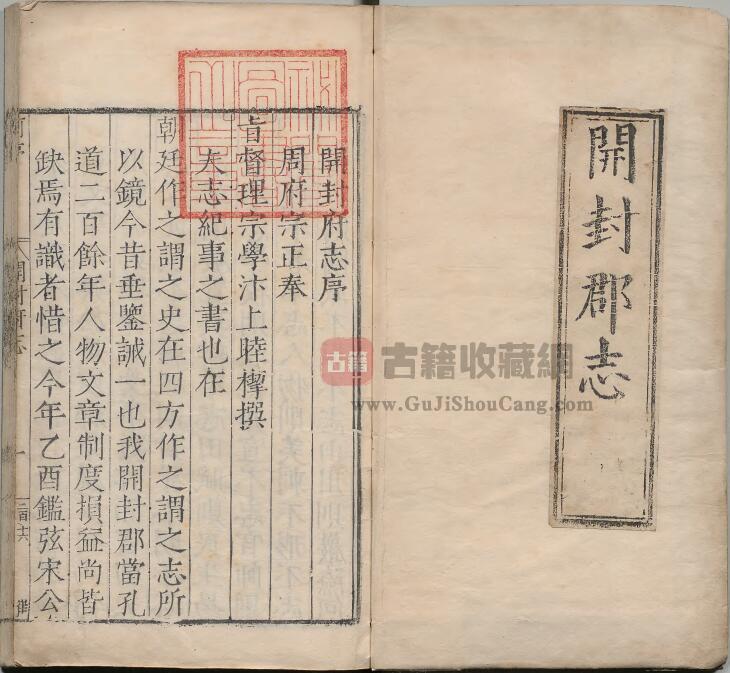 開封郡志
開封府志序
周府宗正奉
旨督理宗學汴上睦㮮撰
夫志紀事之書也在
朝廷作之謂之史在四方作之謂之志所
以鏡今昔垂鑑誡一也我開封郡當孔
道二百餘年人物文章制度損益尚皆
缺焉有識者惜之今年乙酉鑑弦宋公
開封府志
一
古籍 古籍收藏網
www.GuJiShouCang.com